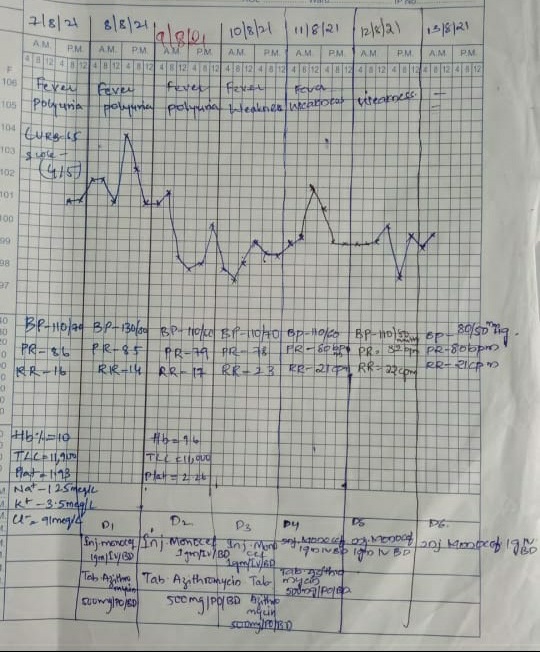 7/8/21 8/8/21 9/8/21 10/8/21 11/8/21 12/8/21 13/8/21
A.M. P.M. A.M. P.M. A.M. P.M. A.M. P.M. A.M. P.M. A.M. P.M. A.M. P.M.
4 8 12 4 8 12 4 8 12 4 8 12 4 8 12 4 8 12 4 8 12 4 8 12 4 8 12 4 8 12 4 8 12 4 8 12 4 8 12
F
106 Fever Fever Fever Fever Fever Weakness —
105 Polyuria polyuria polyuria Weakness Weakness —
104 CURB-65
103 score -
102 (4/5)
101
100
99
98
97
BP-110/70 BP-130/80 BP-110/60 BP-110/70 BP-110/60 BP-110/80 BP- 80/50 mmHg.
PR-86 PR-85 PR-79 PR-78 PR-80bpm PR-82bpm PR-80bpm
RR-16 RR-14 RR-17 RR-23 RR-21cpm RR-22cpm RR-21cpm
Hb%=10 Hb=9.6
TLC=11,900 TLC=11,000
Plat=1.93 Plat=2.26
Na+-125meq/L
K+-3.5meq/L
Cl-=91meq/L
D1 D2 D3 D4 D5 D6.
Inj-monocef Inj-Monocef Inj-Mono inj.Monocef inj.Monocef inj Monocef 1g IV
1gm/IV/BD 1gm/IV/BD cef 1g IV BD 1g IV BD BD
1gm/IV/BD
Tab-Azithro Tab Azithromycin Tab Tab-azithro
mycin 500mg/PO/BD Azithro mycin
500mg/PO/BD mycin 500mg/PO/BD
500mg/PO/BD